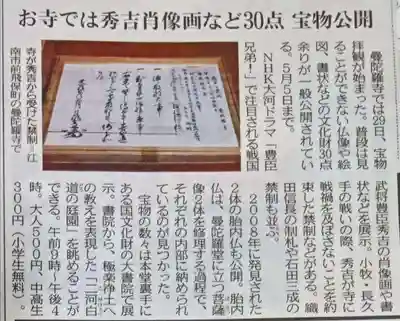 お寺では秀吉肖像画など30点 宝物公開
曼陀羅寺では29日、宝物
拝観が始まった。普段は見
ることができない仏像や絵
図、書状などの文化財30点
余りが一般公開されてい
る。5月5日まで。
NHK大河ドラマ「豊臣
兄弟!」で注目される戦国
武将豊臣秀吉の肖像画や書
状などを展示。小牧・長久
手の戦いの際、秀吉が寺に
戦禍を及ぼさないことを約
束した禁制などがある。織
田信長の制札や石田三成の
禁制も並ぶ。
2008年に発見された
2体の胎内仏も公開。胎内
仏は、曼陀羅堂に立つ菩薩
像2体を修理する過程で、
それぞれの内部に納められ
ているのが見つかった。
宝物の数々は本堂裏手に
ある国文化財の大書院で展
示。書院から、極楽浄土へ
の教えを表現した「二河白
道の庭園」を眺めることが
できる。午前9時〜午後4
時。大人500円、中高生
300円(小学生無料)。
寺が秀吉から受けた禁制=江
南市前飛保町の曼陀羅寺で